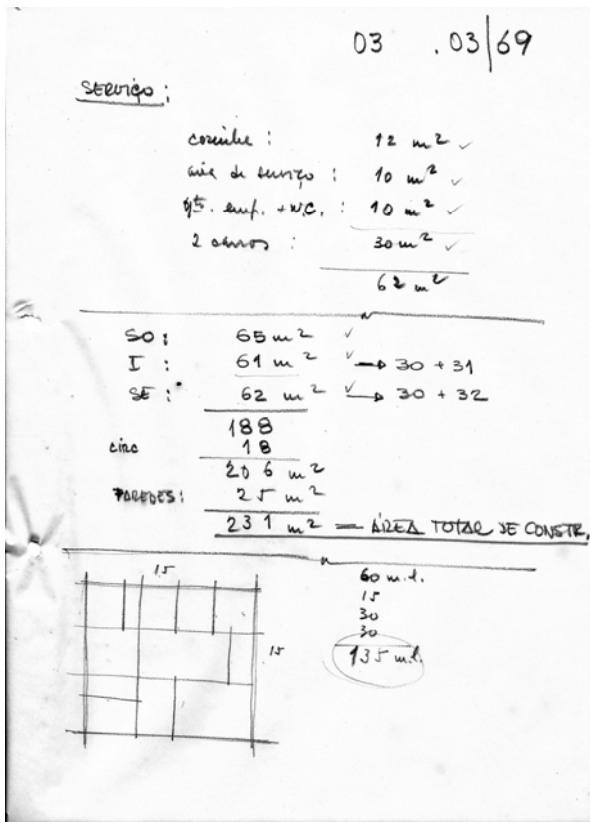 03 .03/69
SERVIÇO:
cozinha : 12 m² ✓
área de serviço : 10 m² ✓
qto. emp. + W.C. : 10 m² ✓
2 carros : 30 m² ✓
62 m²
SO : 65 m² ✓
I : 61 m² ✓ → 30 + 31
SE : 62 m² ✓ → 30 + 32
188
circ 18
206 m²
PAREDES: 25 m²
231 m² — ÁREA TOTAL DE CONSTR.
15
15
60 m.l.
15
30
30
135 m.l.